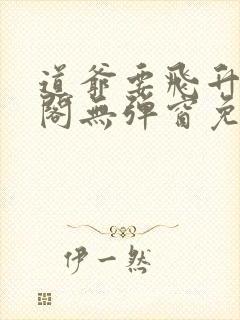 道爺要飛升
閣無彈窗免
伊一然